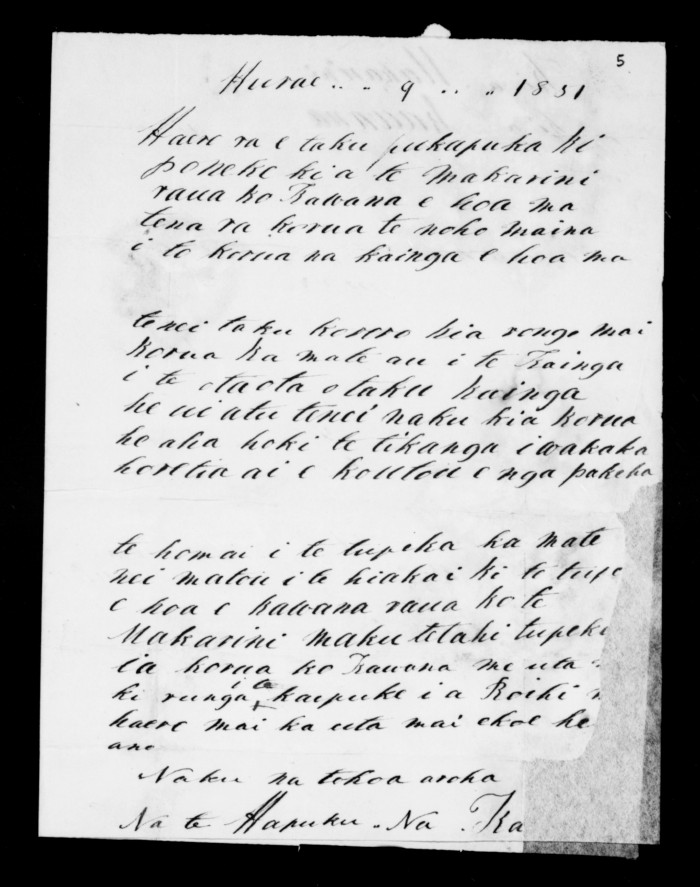 5
Hurae .. .. 9 .. .. 1851
Haere ra e taku pukapuka ki
poneke ki a te makarini
raua ko Kawana e hoa ma
tena ra korua te noho maina
i to korua na kainga e hoa ma
tenei taku korero kia rongo mai
korua ka mate au i te Kainga
i te otaota o taku kainga
he ui atu tenei naku kia korua
he aha hoki te tikanga i wakaka
horetia ai e koutou e nga pakeha
te homai i te tupeka ka mate
nei matou i te hiakai ki te tupe
e hoa e kawana raua ko te
Makarini maku tetahi tupeka
i a korua ko Kawana me uta
ki runga i te kaipuke i a
haere mai ka uta mai ekoe he
ano
Naku na to hoa aroha
Na te Hapuku . Na Ka